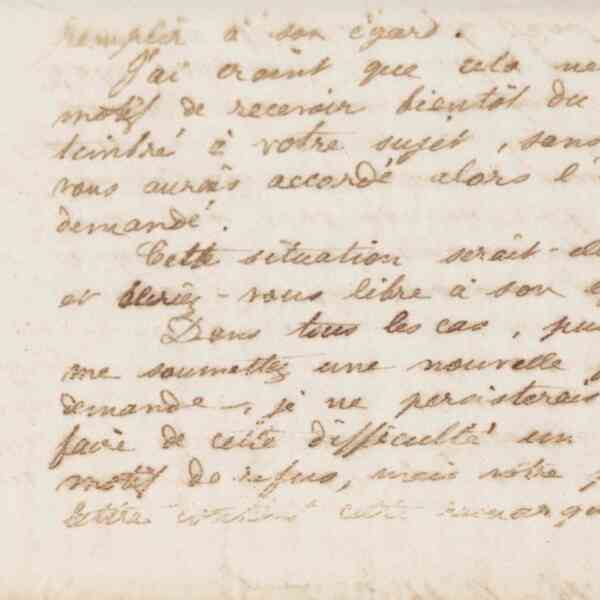 remplir à son égard.
J'ai craint que cela ne
motif de recevoir bientôt du
timbré à votre sujet, sans
vous aurais accordé alors l'
demandé.
Cette situation serait-
et -vous libre à son
Dans tous les cas,
me soumettez une nouvelle
demande, je ne persisterais
faire de cette difficulté un
motif de refus, mais votre
lettre cette